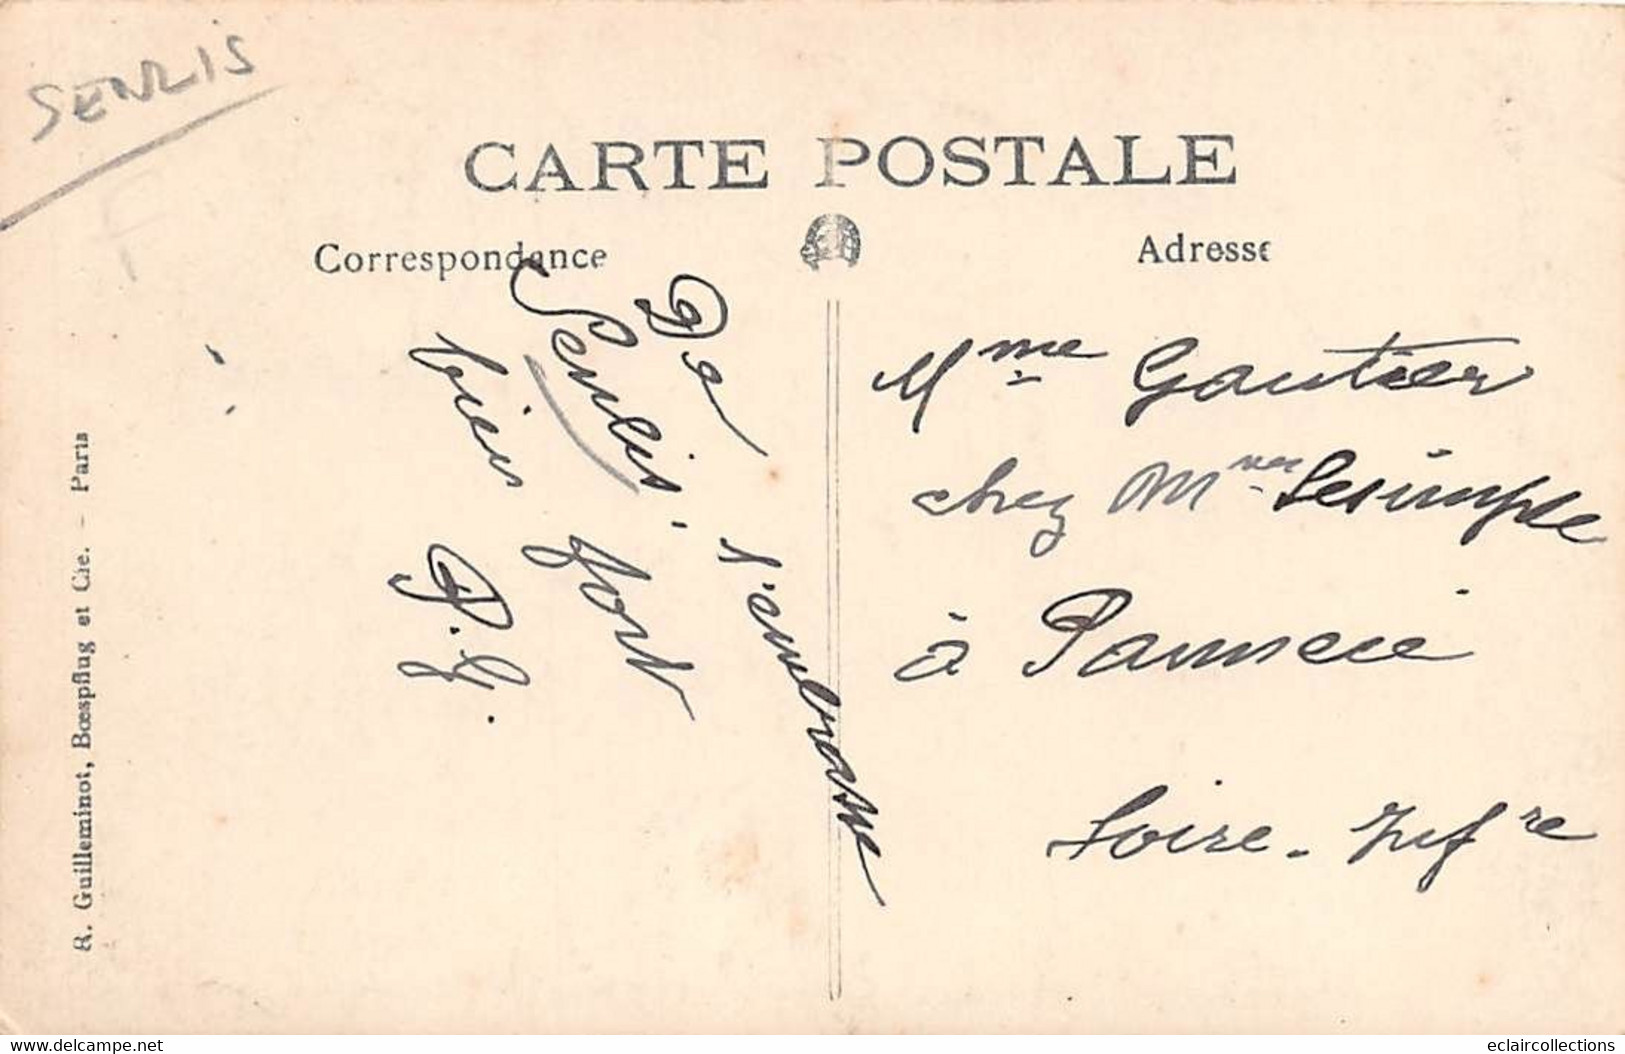 SENLIS
CARTE POSTALE
Correspondance
Adresse
De
Senlis. t'embrasse
bien fort
P. G.
Mme Gautier
chez Mme Lesimple
à Pannecé
Loire-Infre
R. Guilleminot, Bœspflug et Cie. - Paris
www.delcampe.net
eclaircollections